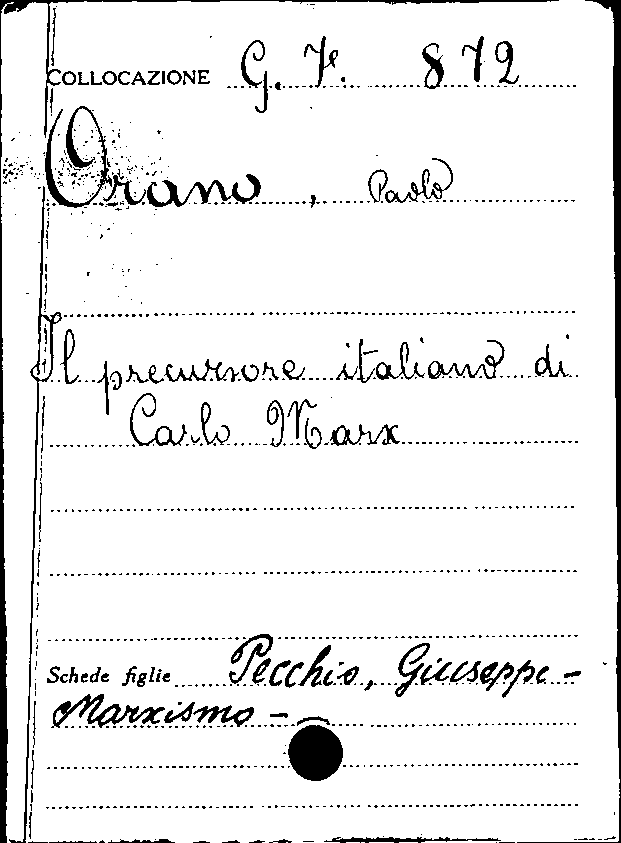 COLLOCAZIONE G. F. 872
Orano, Paolo
Il precursore italiano di
Carlo Marx
Schede figlie Pecchio, Giuseppe -
Marxismo -